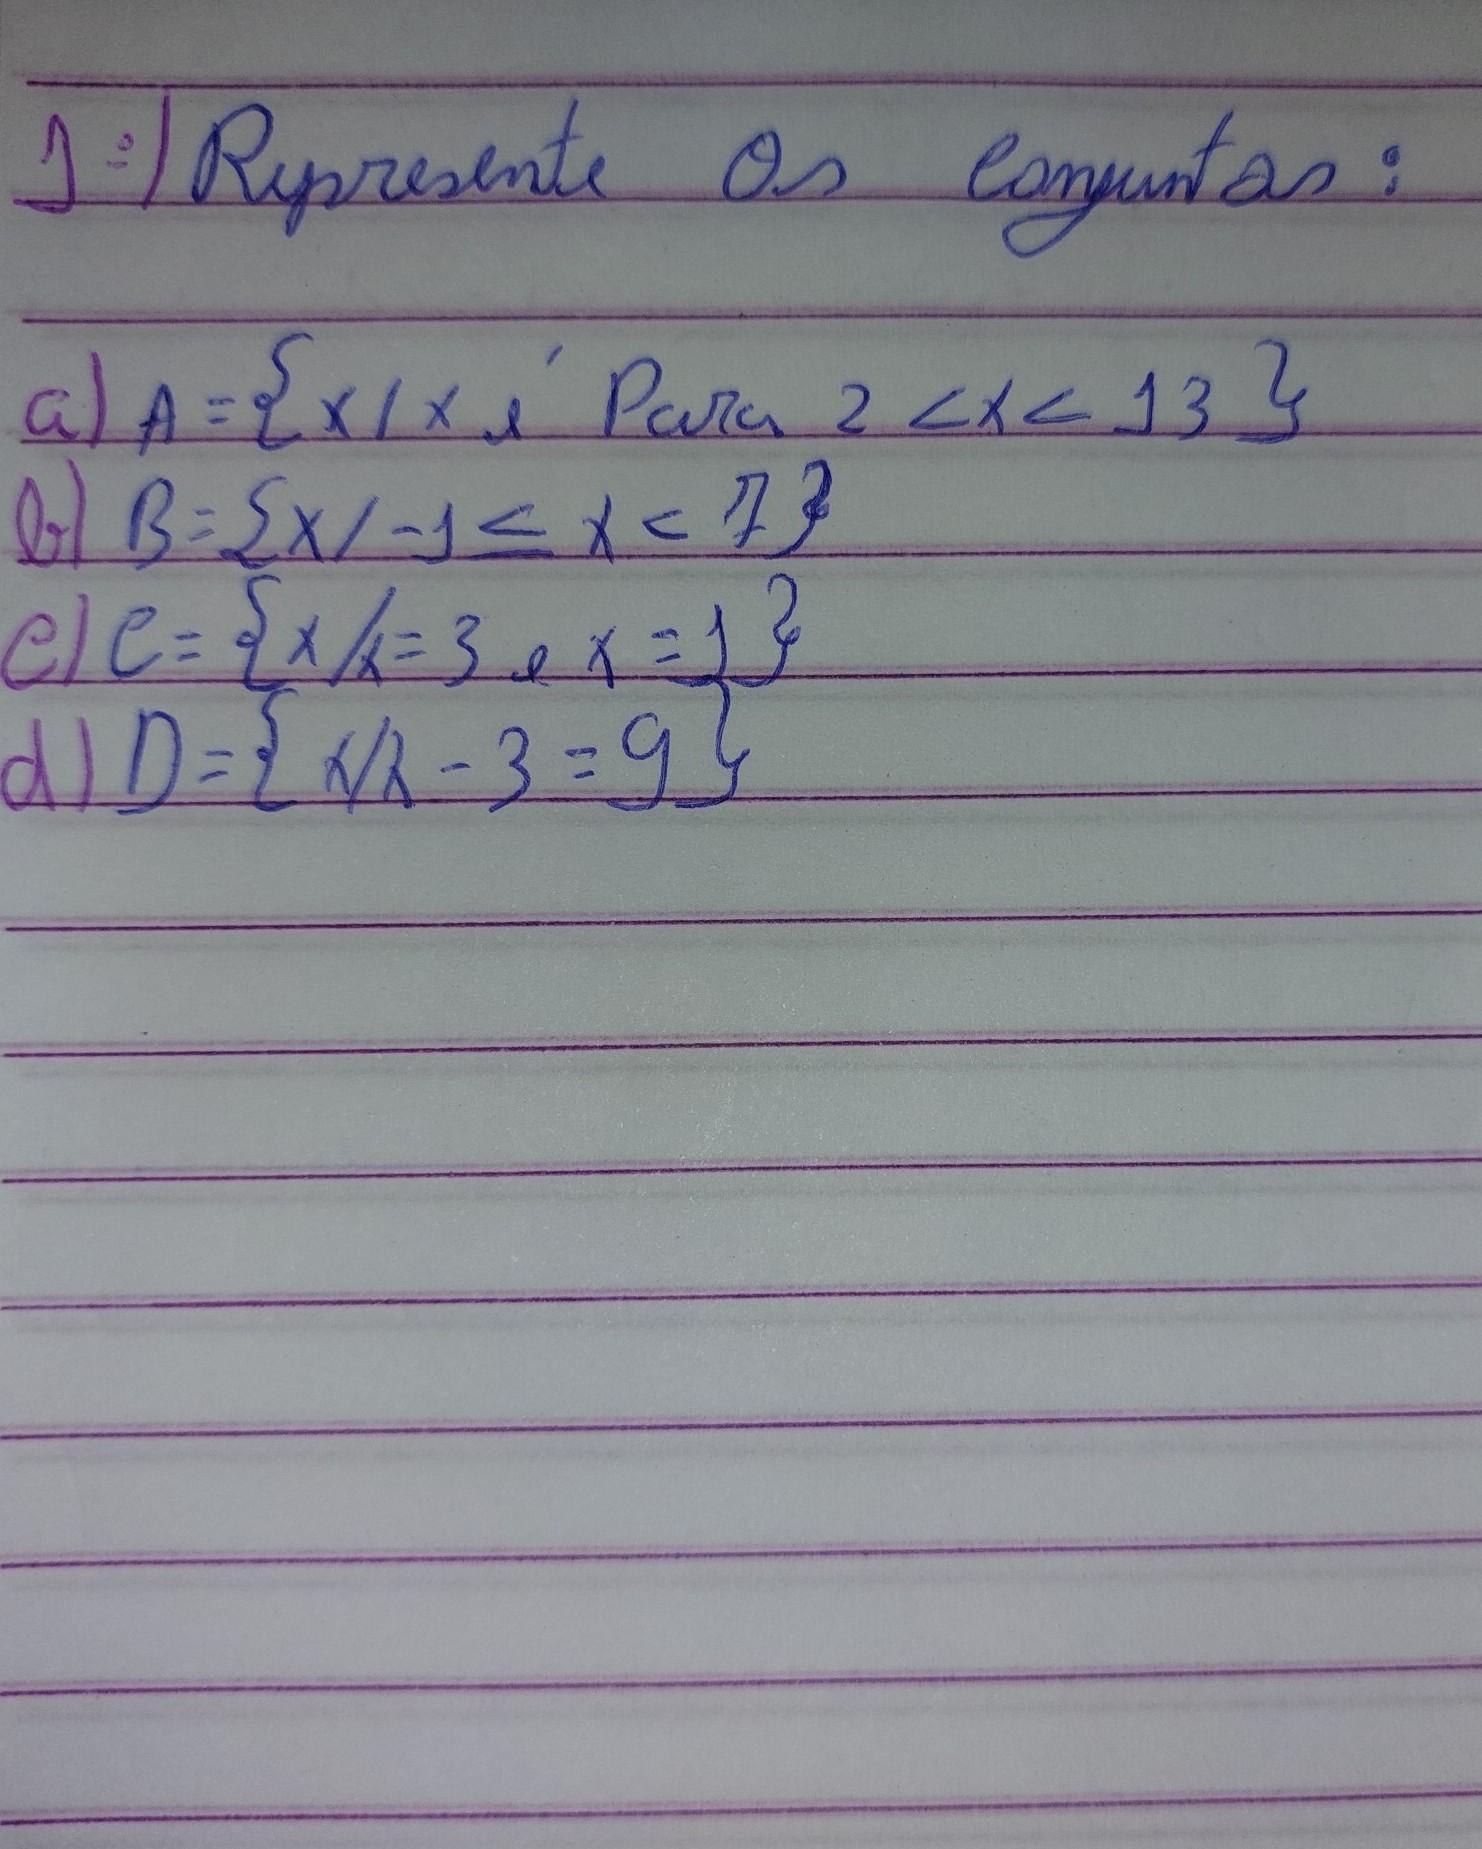 1=) Represente os conjuntos:
a) A = {x/x é Para 2 < x < 13}
b) B = {x/-1 ≤ x < 7}
c) C = {x/x = 3 e x = 1}
d) D = {x/x - 3 = 9}